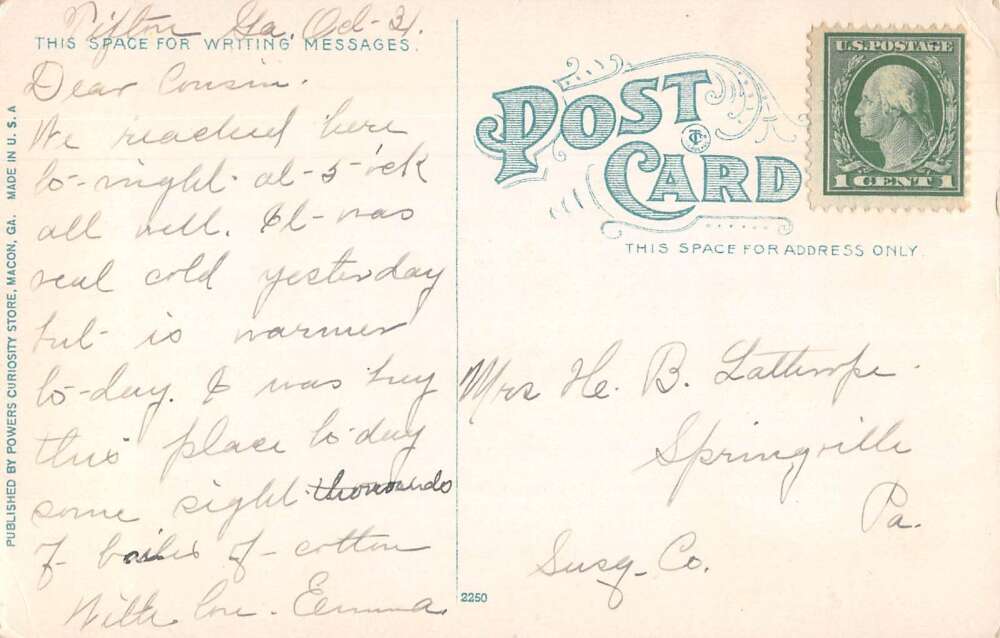 Tifton Ga. Oct-31.
THIS SPACE FOR WRITING MESSAGES.
Dear Cousin.
We reached here
to-night at-5-
all well. It-was
real cold yesterday
but-is warmer
to-day. I was
this place to-day
some sight. thousands
of bailes of-cotton
With love-Emma.
PUBLISHED BY POWERS CURIOSITY STORE, MACON, GA. MADE IN U. S. A
POST
CARD
THIS SPACE FOR ADDRESS ONLY.
U.S. POSTAGE
1 CENT 1
Mrs H. B. Lathrope.
Springville
Pa.
Susq-Co.
2250